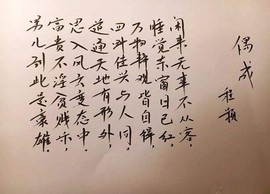 偶成
程颢
闲来无事不从容，
睡觉东窗日已红，
万物静观皆自得
四时佳兴与人同
道通天地有形外，
思入风云变态中
富贵不淫贫贱乐
男儿到此是豪雄。